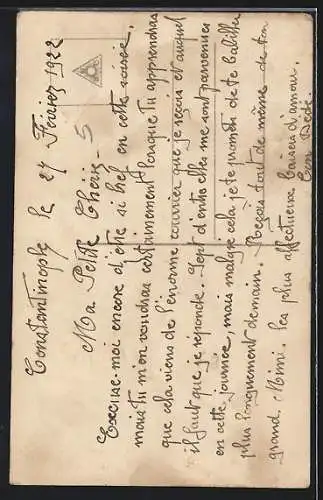 Constantinople le 27 Février 1922
Ma Petite Chérie. 5
Excuse-moi encore d'être si bref en cette soirée.
mais tu m'en voudras certainement lorsque tu apprendras
que cela viens de l'énorme courrier que je reçois et auquel
il faut que je reponde. Sept d'entre elles me sont parvenues
en cette journée, mais malgré cela je te promets de te babiller
plus longuement demain. Reçois tout de même de ton
grand. Mimi. les plus affectueux baisers d'amour.
Ton Dédé.